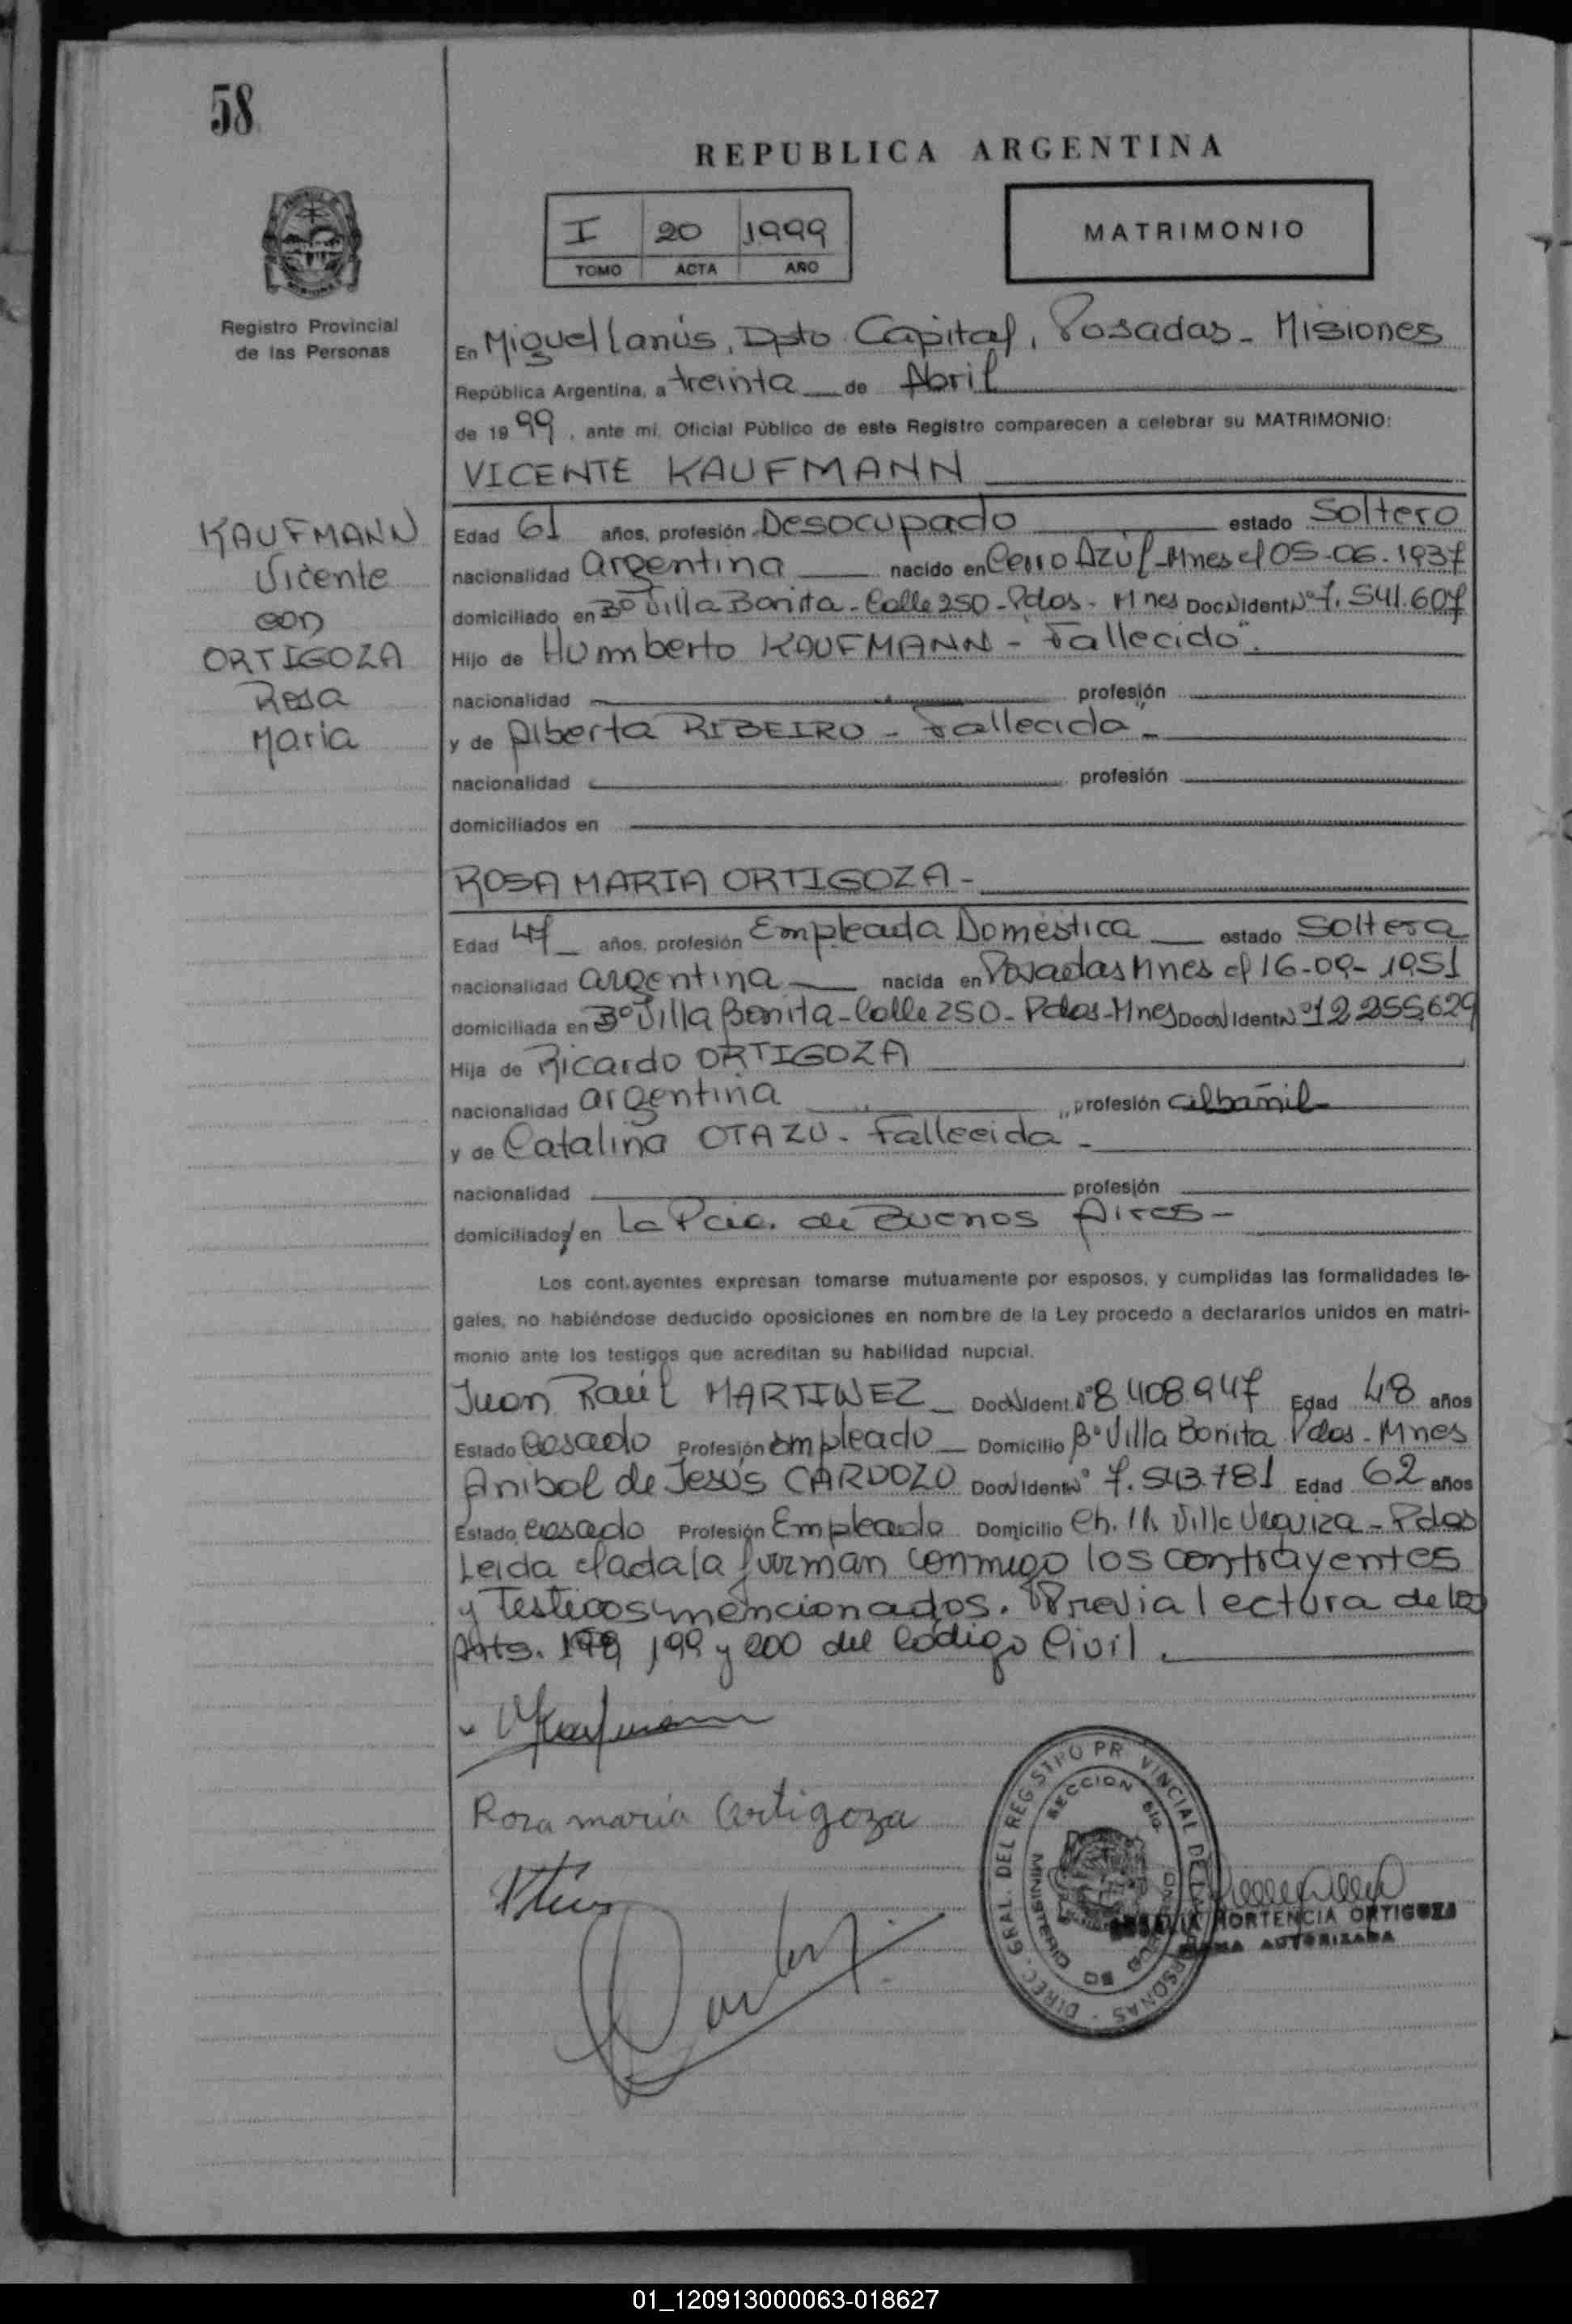 58
REPUBLICA ARGENTINA
I 20 1999
TOMO ACTA AÑO
MATRIMONIO
Registro Provincial
de las Personas
En Miguel Lanús, Dpto Capital, Posadas - Misiones
República Argentina, a treinta de Abril
de 1999, ante mí, Oficial Público de este Registro comparecen a celebrar su MATRIMONIO:
VICENTE KAUFMANN
KAUFMANN
Vicente
con
ORTIGOZA
Rosa
Maria
Edad 61 años, profesión Desocupado estado Soltero
nacionalidad argentina nacido en Cerro Azul-Mnes el 05-06-1937
domiciliado en Bº Villa Bonita - Calle 250 - Pdas - Mnes Doc. Ident. Nº 7.541.607
Hijo de Humberto KAUFMANN - "Fallecido".
nacionalidad profesión
y de Alberta RIBEIRO - Fallecida" -
nacionalidad profesión
domiciliados en
ROSA MARIA ORTIGOZA -
Edad 47 años, profesión Empleada Doméstica estado Soltera
nacionalidad argentina nacida en Posadas Mnes el 16-09-1951
domiciliada en Bº Villa Bonita - Calle 250 - Pdas - Mnes Doc. Ident. Nº 12.255.629
Hija de Ricardo ORTIGOZA
nacionalidad argentina profesión albañil
y de Catalina OTAZU - Fallecida -
nacionalidad profesión
domiciliados en La Pcia. de Buenos Aires -
Los contrayentes expresan tomarse mutuamente por esposos, y cumplidas las formalidades le-
gales, no habiéndose deducido oposiciones en nombre de la Ley procedo a declararlos unidos en matri-
monio ante los testigos que acreditan su habilidad nupcial.
Juan Raúl MARTINEZ Doc. Ident. Nº 8.408.947 Edad 48 años
Estado Casado Profesión Empleado Domicilio Bº Villa Bonita Pdas - Mnes
Anibal de Jesús CARDOZO Doc. Ident. Nº 7.543.781 Edad 62 años
Estado casado Profesión Empleado Domicilio Ch. Villa Urquiza - Pdas
Leida el acta la firman conmigo los contrayentes
y Testigos mencionados. Previa lectura de los
Arts. 198, 199 y 200 del Código Civil.
Rosa maria Ortigoza
DIREC. GRAL. DEL REGISTRO PROVINCIAL DE LAS PERSONAS
HORTENCIA ORTIGOZA
FIRMA AUTORIZADA
01_120913000063-018627